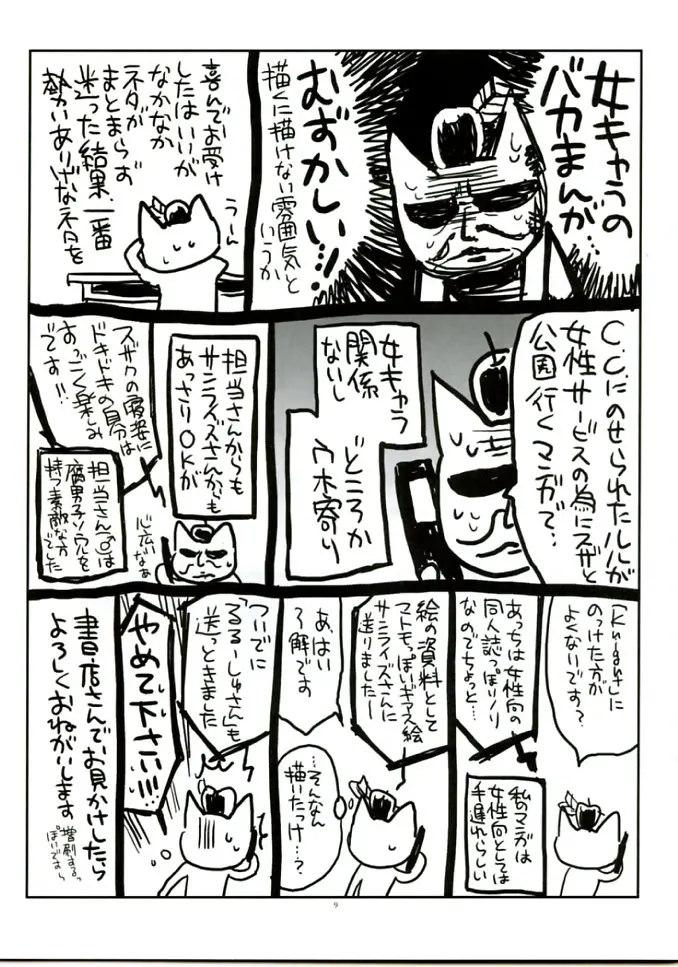 女キャラの
バカまんが
むずかしい…!!
描くに描けない雰囲気と
いうか
喜んでお受け
したはいいが
なかなか
ネタが
まとまらず
迷った結果、一番
勢いありげなネタを
うーん
C.C.にのせられたルルが
女性サービスの為にスザと
公園行くマンガで…
女キャラ
関係
ないし
どころか
ウホ寄り
担当さんからも
サンライズさんからも
あっさりOKが
心広いなぁ
スザクの雄姿に
ドキドキの自分は
すっごく楽しみ
です!!…
担当さん(♂)は
腐男子ソウルを
持つ素敵な方
でした
「Knight」に
のっけた方が
よくないです?
あっちは女性向の
同人誌っぽいノリ
なのでちょっと…
私のマンガは
女性向としては
手遅れらしい
絵の資料として
マトモっぽいギアス絵
サンライズさんに
送りましたー
あ、はい
了解です
…そんなん
描いたっけ…?
ついでに
「るるーしゅさん」も
送っときました
やめて下さい!!!!
書店さんでお見かけしたら
よろしくおねがいします
増刷するっ
ぽいですから
9